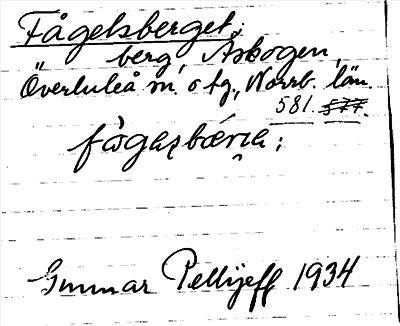 Fågelsberget,
berg, Askogen,
Överluleå sn. o tg., Norrb. län.
581. 577.
Gunnar Pellijeff 1934